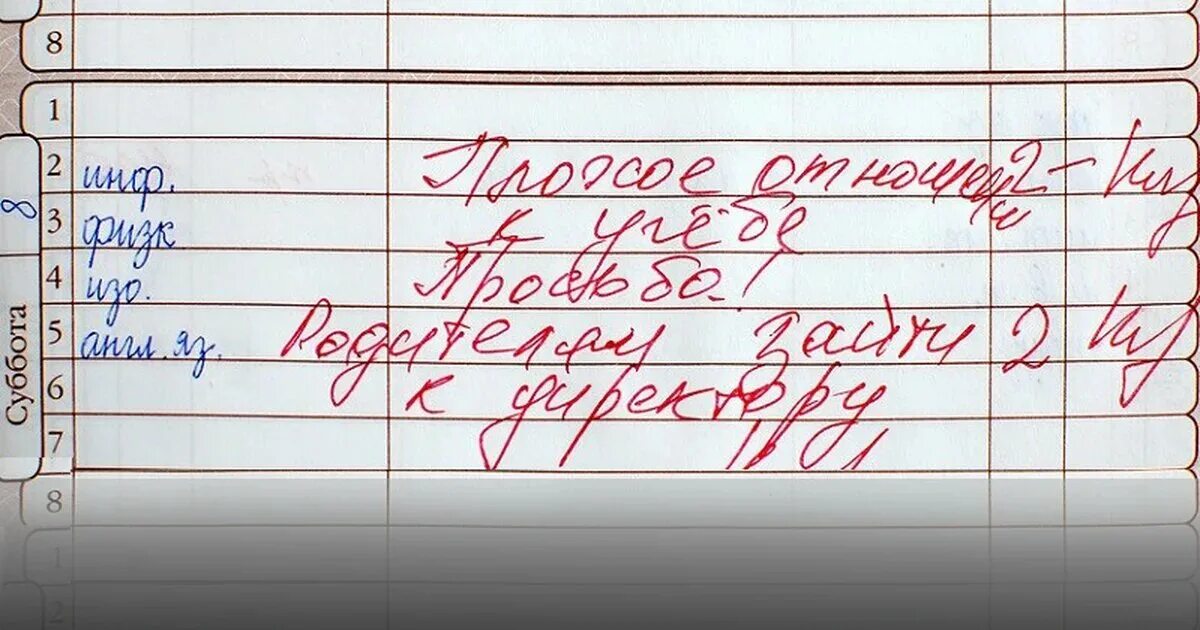 8
1
2 инф. Плохое отношение 2- Ку
3 физк к учёбе
4 изо. Просьба!
5 англ. яз. Родителям зайти 2 Ку
6 к директору
7
8
1
2
8
Суббота